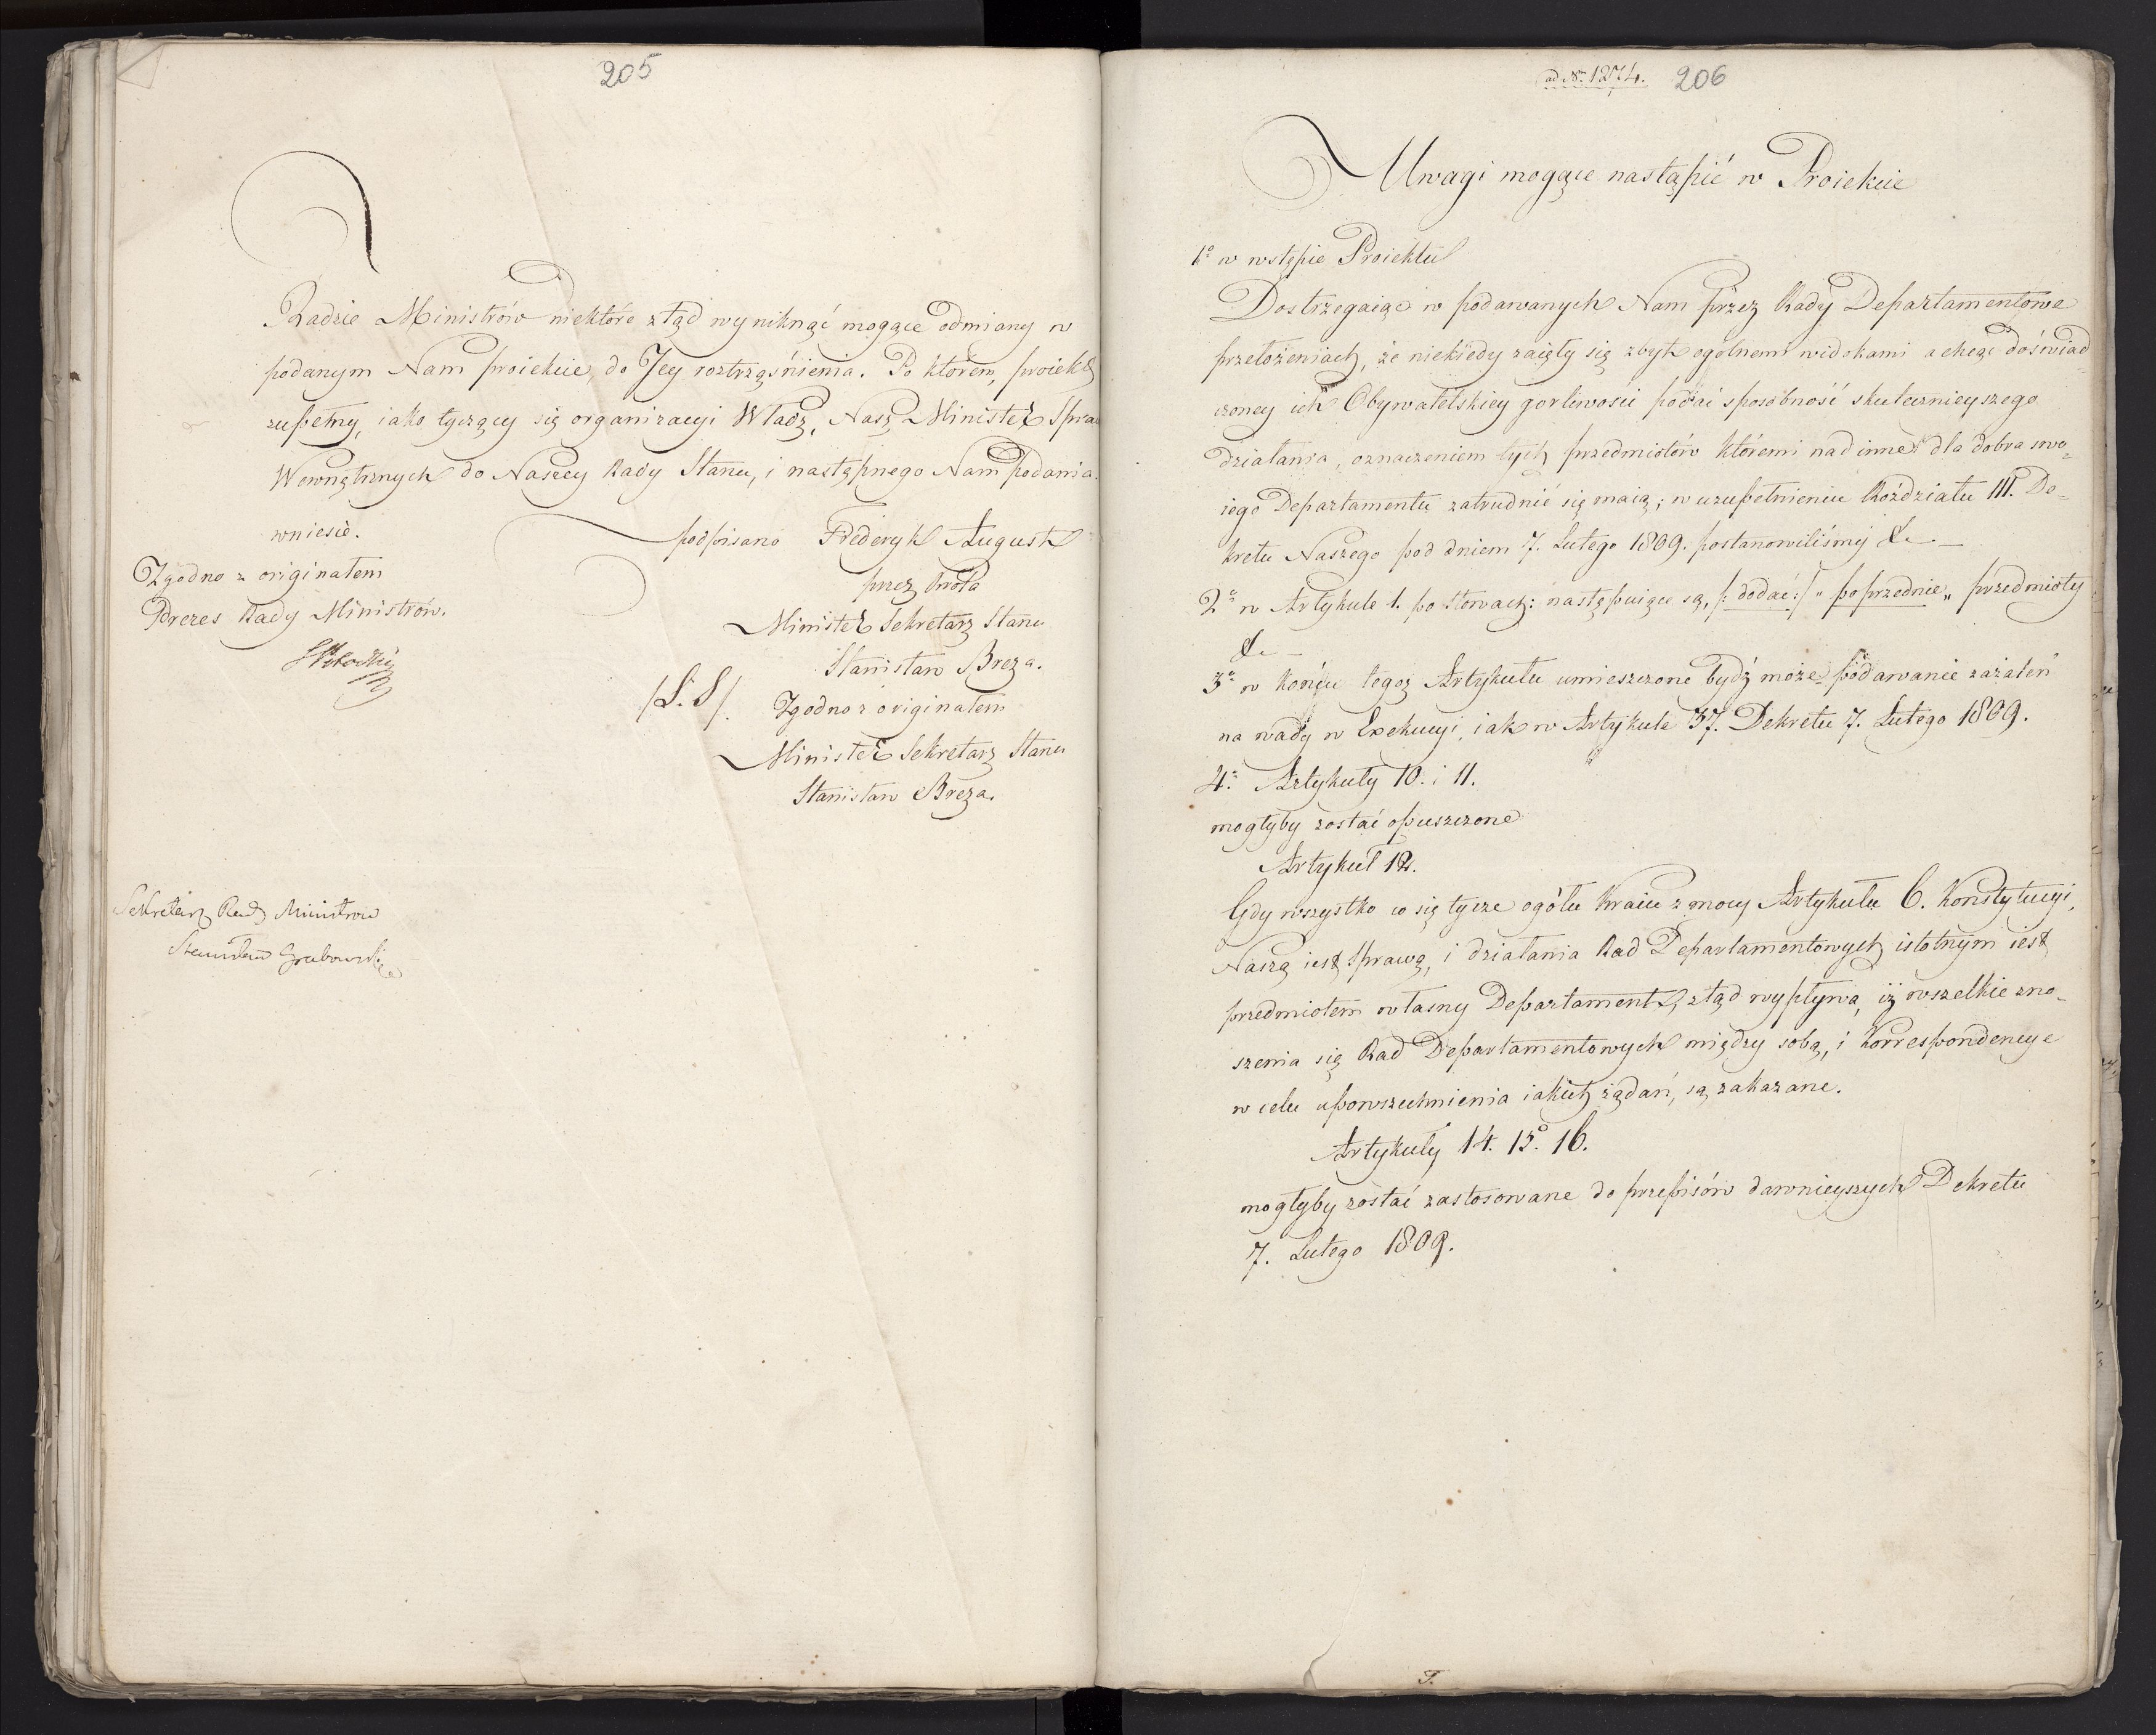 205
Radzie Ministrów niektóre ztąd wyniknąć mogące odmiany w
podanym Nam proiekcie, do Jey roztrząśnienia. Po którem, proiekt
zupełny, iako tyczący się organizacyi Władz, Nasz Minister Spraw
Wewnętrznych do Naszey Rady Stanu, i następnego Nam podania.
wniesie.
podpisano Frederyk August
przez Króla
Minister Sekretarz Stanu
Stanisław Breza.
/L. S/. Zgodno z originałem
Minister Sekretarz Stanu
Stanisław Breza.
Zgodno z originałem
Prezes Rady Ministrów.
Sekretarz Rady Ministrow
Stanisław Grabowski
ad Nrm 1274. 206
Uwagi mogące nastąpić w Proiekcie
1o w wstępie Proiektu
Dostrzegaiąc w podawanych Nam przez Rady Departamentowe
przełożeniach, że niekiedy zaięły się zbyt ogólnemi widokami a chcąc doświad=
czoney ich Obywatelskiey gorliwości podać sposobność skutecznieyszego
działania, oznaczeniem tych przedmiotów któremi nad inne dla dobra swo=
iego Departamentu zatrudnić się maią; w uzupełnieniu Rozdziału III. De=
kretu Naszego pod dniem 7. Lutego 1809. postanowiliśmy &c
2o w Artykule 1. po słowach: następuiące są, /: dodać :/ „ poprzednie „ przedmioty
&c
3o w końcu tegoż Artykułu umieszczone bydź może podawanie zażaleń
na wady w Exekucyi, iak w Artykule 37. Dekretu 7. Lutego 1809.
4o Artykuły 10. i 11.
mogłyby zostać opuszczone
Artykuł 12.
Gdy wszystko co się tycze ogółu Kraiu z mocy Artykułu 6. Konstytucyi,
Naszą iest sprawą, i działania Rad Departamentowych istotnym iest
przedmiotem własny Departament, ztąd wypływa, iż wszelkie zno=
szenia się Rad Departamentowych między sobą, i Korrespondencye
w celu upowszechnienia iakich żądań, są zakazane.
Artykuły 14. 15. 16.
mogłyby zostać zastosowane do przepisów dawnieyszych Dekretu
7. Lutego 1809.